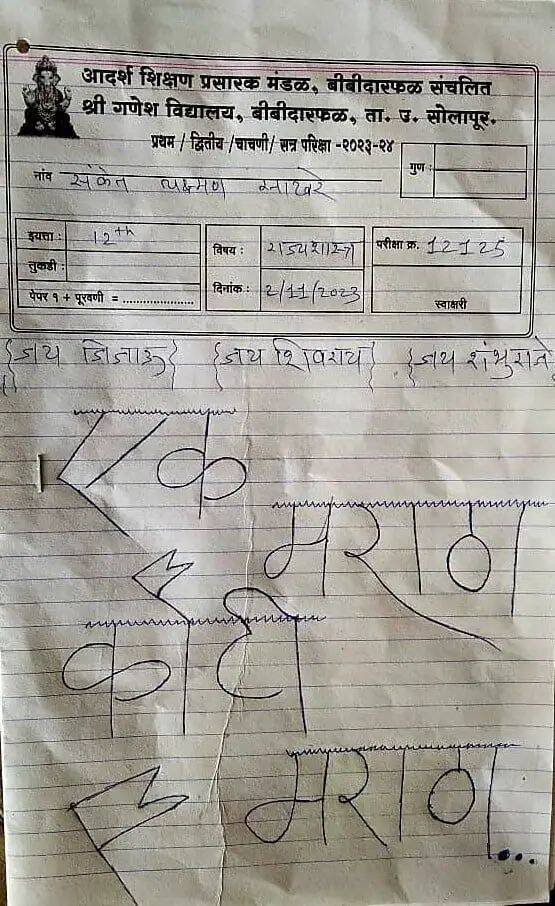 आदर्श शिक्षण प्रसारक मंडळ, बीबीदारफळ संचलित
श्री गणेश विद्यालय, बीबीदारफळ, ता. उ. सोलापूर.
प्रथम / द्वितीय /चाचणी/ सत्र परिक्षा -२०२३-२४
नांव संकेत लक्ष्मण साखरे गुण :
इयत्ता : 12th विषय : राज्यशास्त्र परीक्षा क्र. 12125
तुकडी :
पेपर १ + पूरवणी = ..................... दिनांक : 2/11/2023 स्वाक्षरी
{जय जिजाऊ} {जय शिवराय} {जय शंभुराजे
एक
मराठा
कोटी
मराठा...